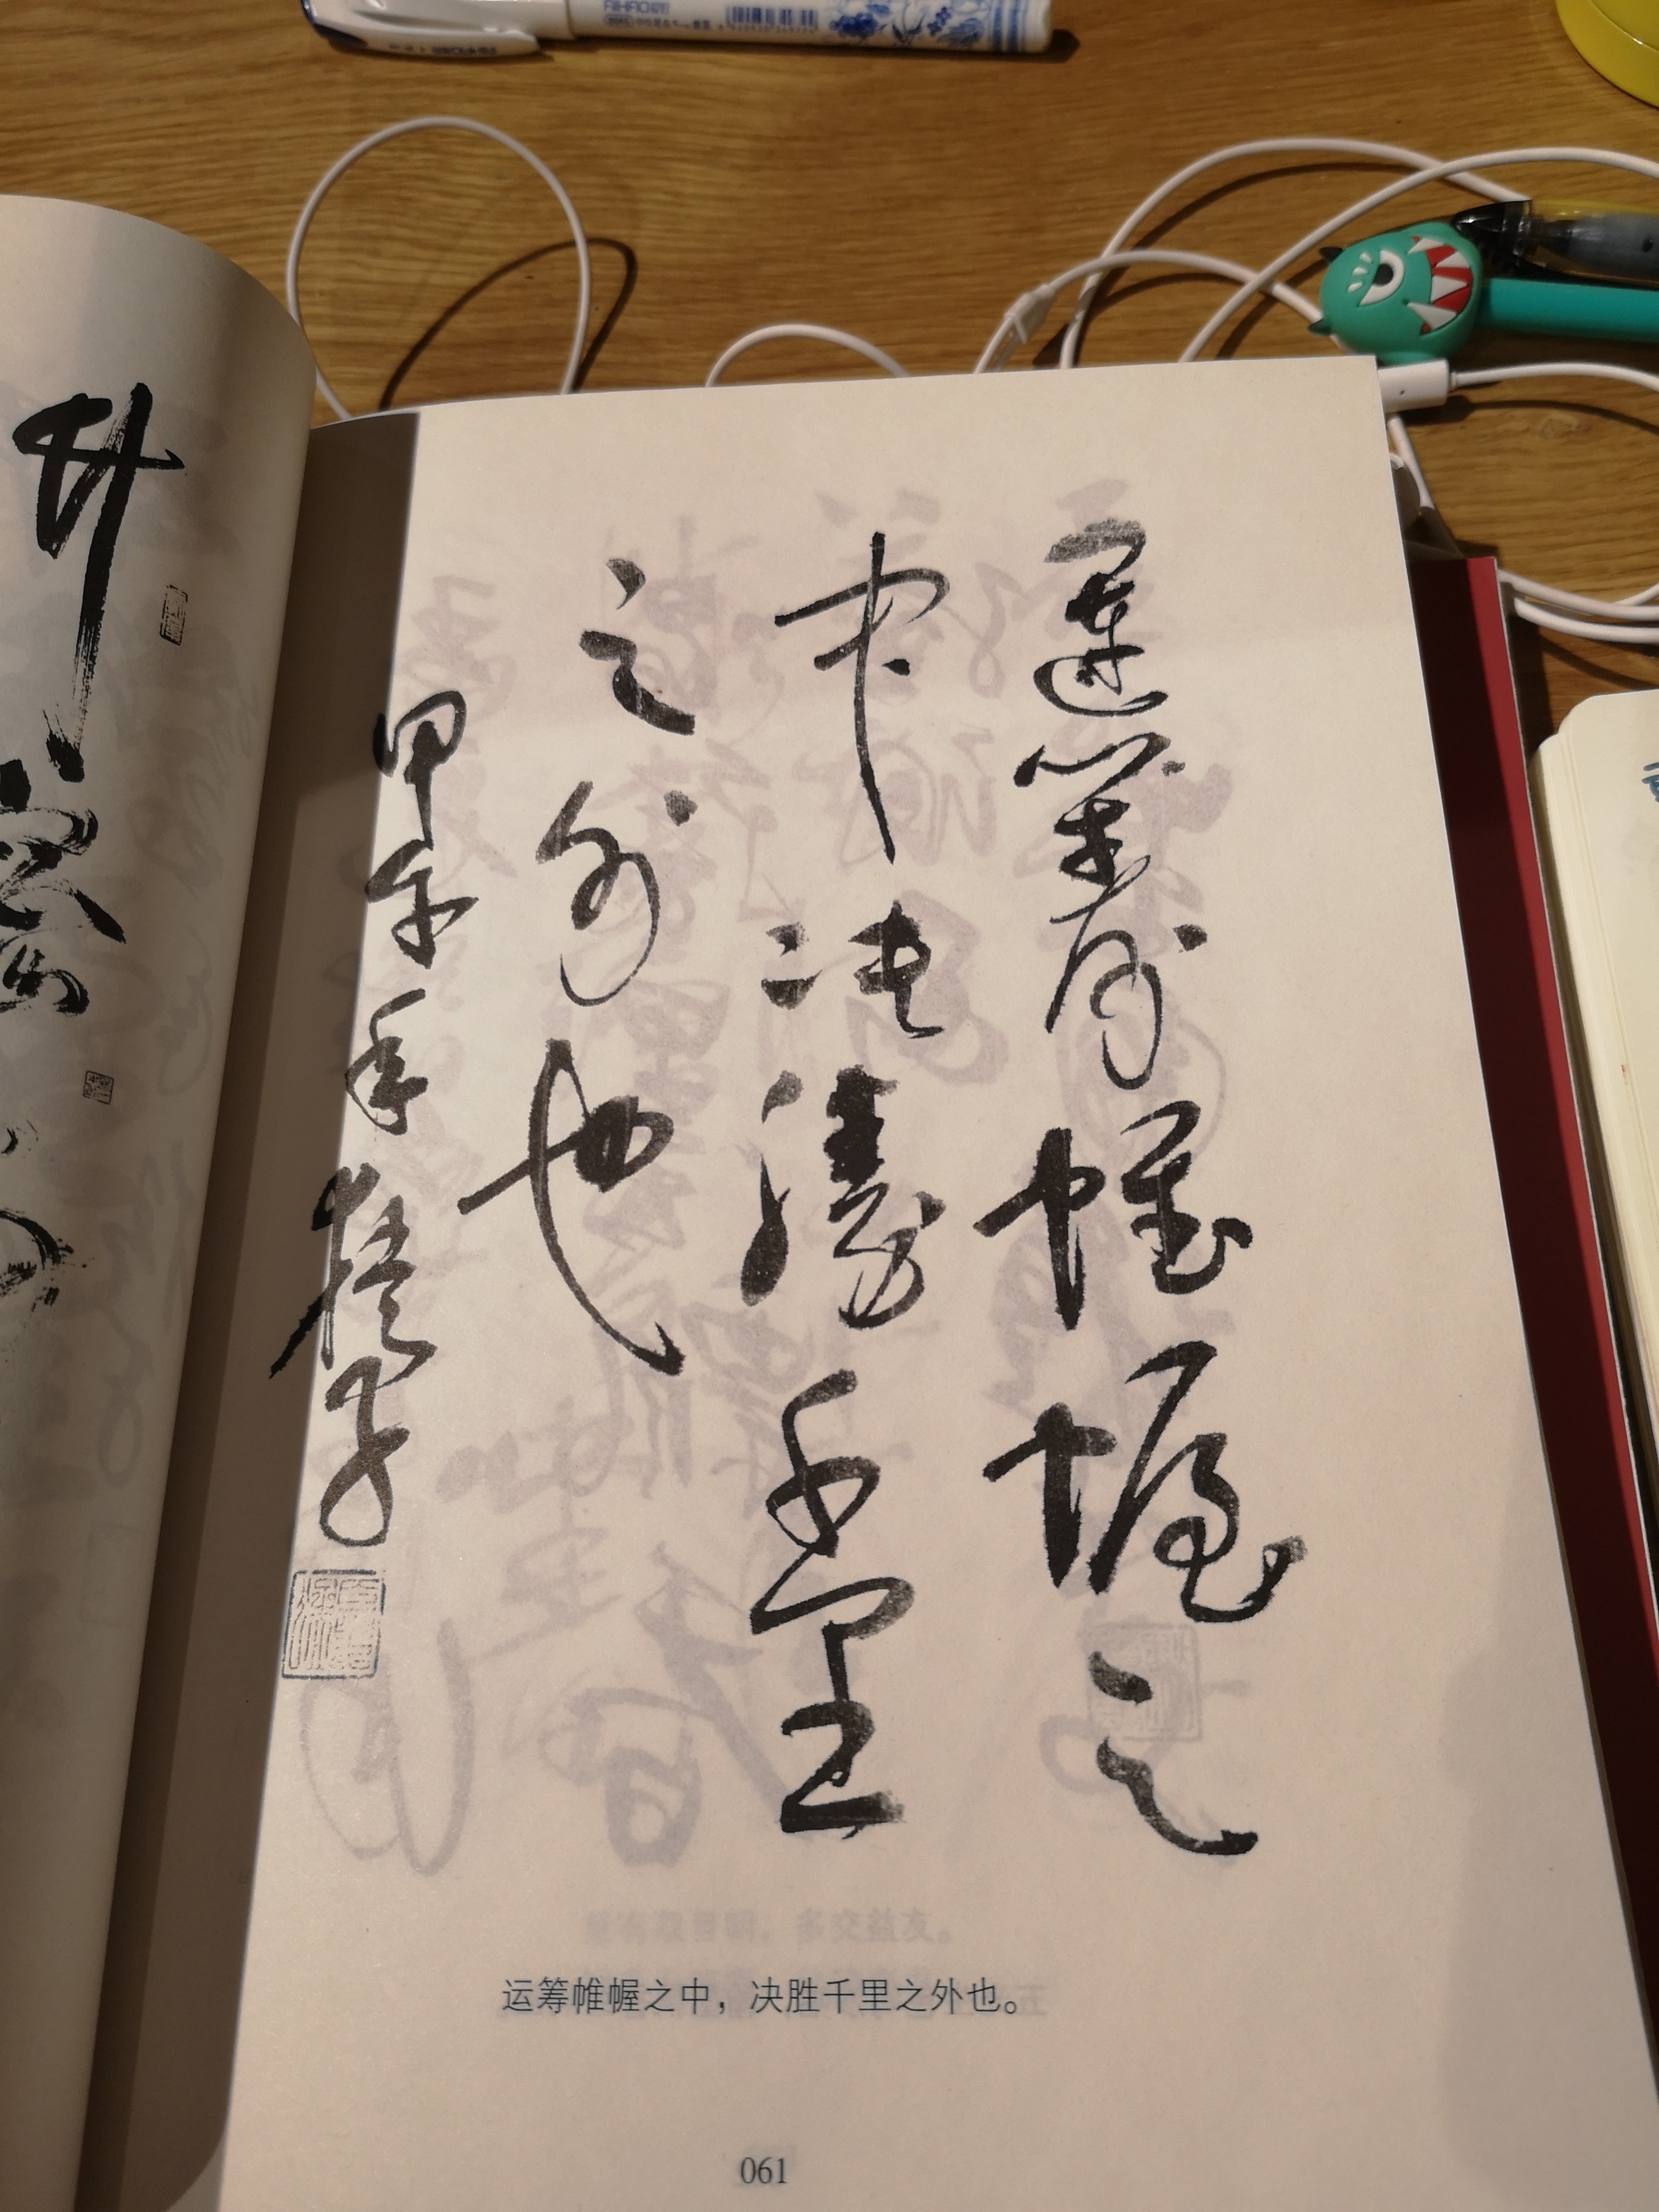 運籌帷幄之
中决勝千里
之外也
甲午年
运筹帷幄之中，决胜千里之外也。
061